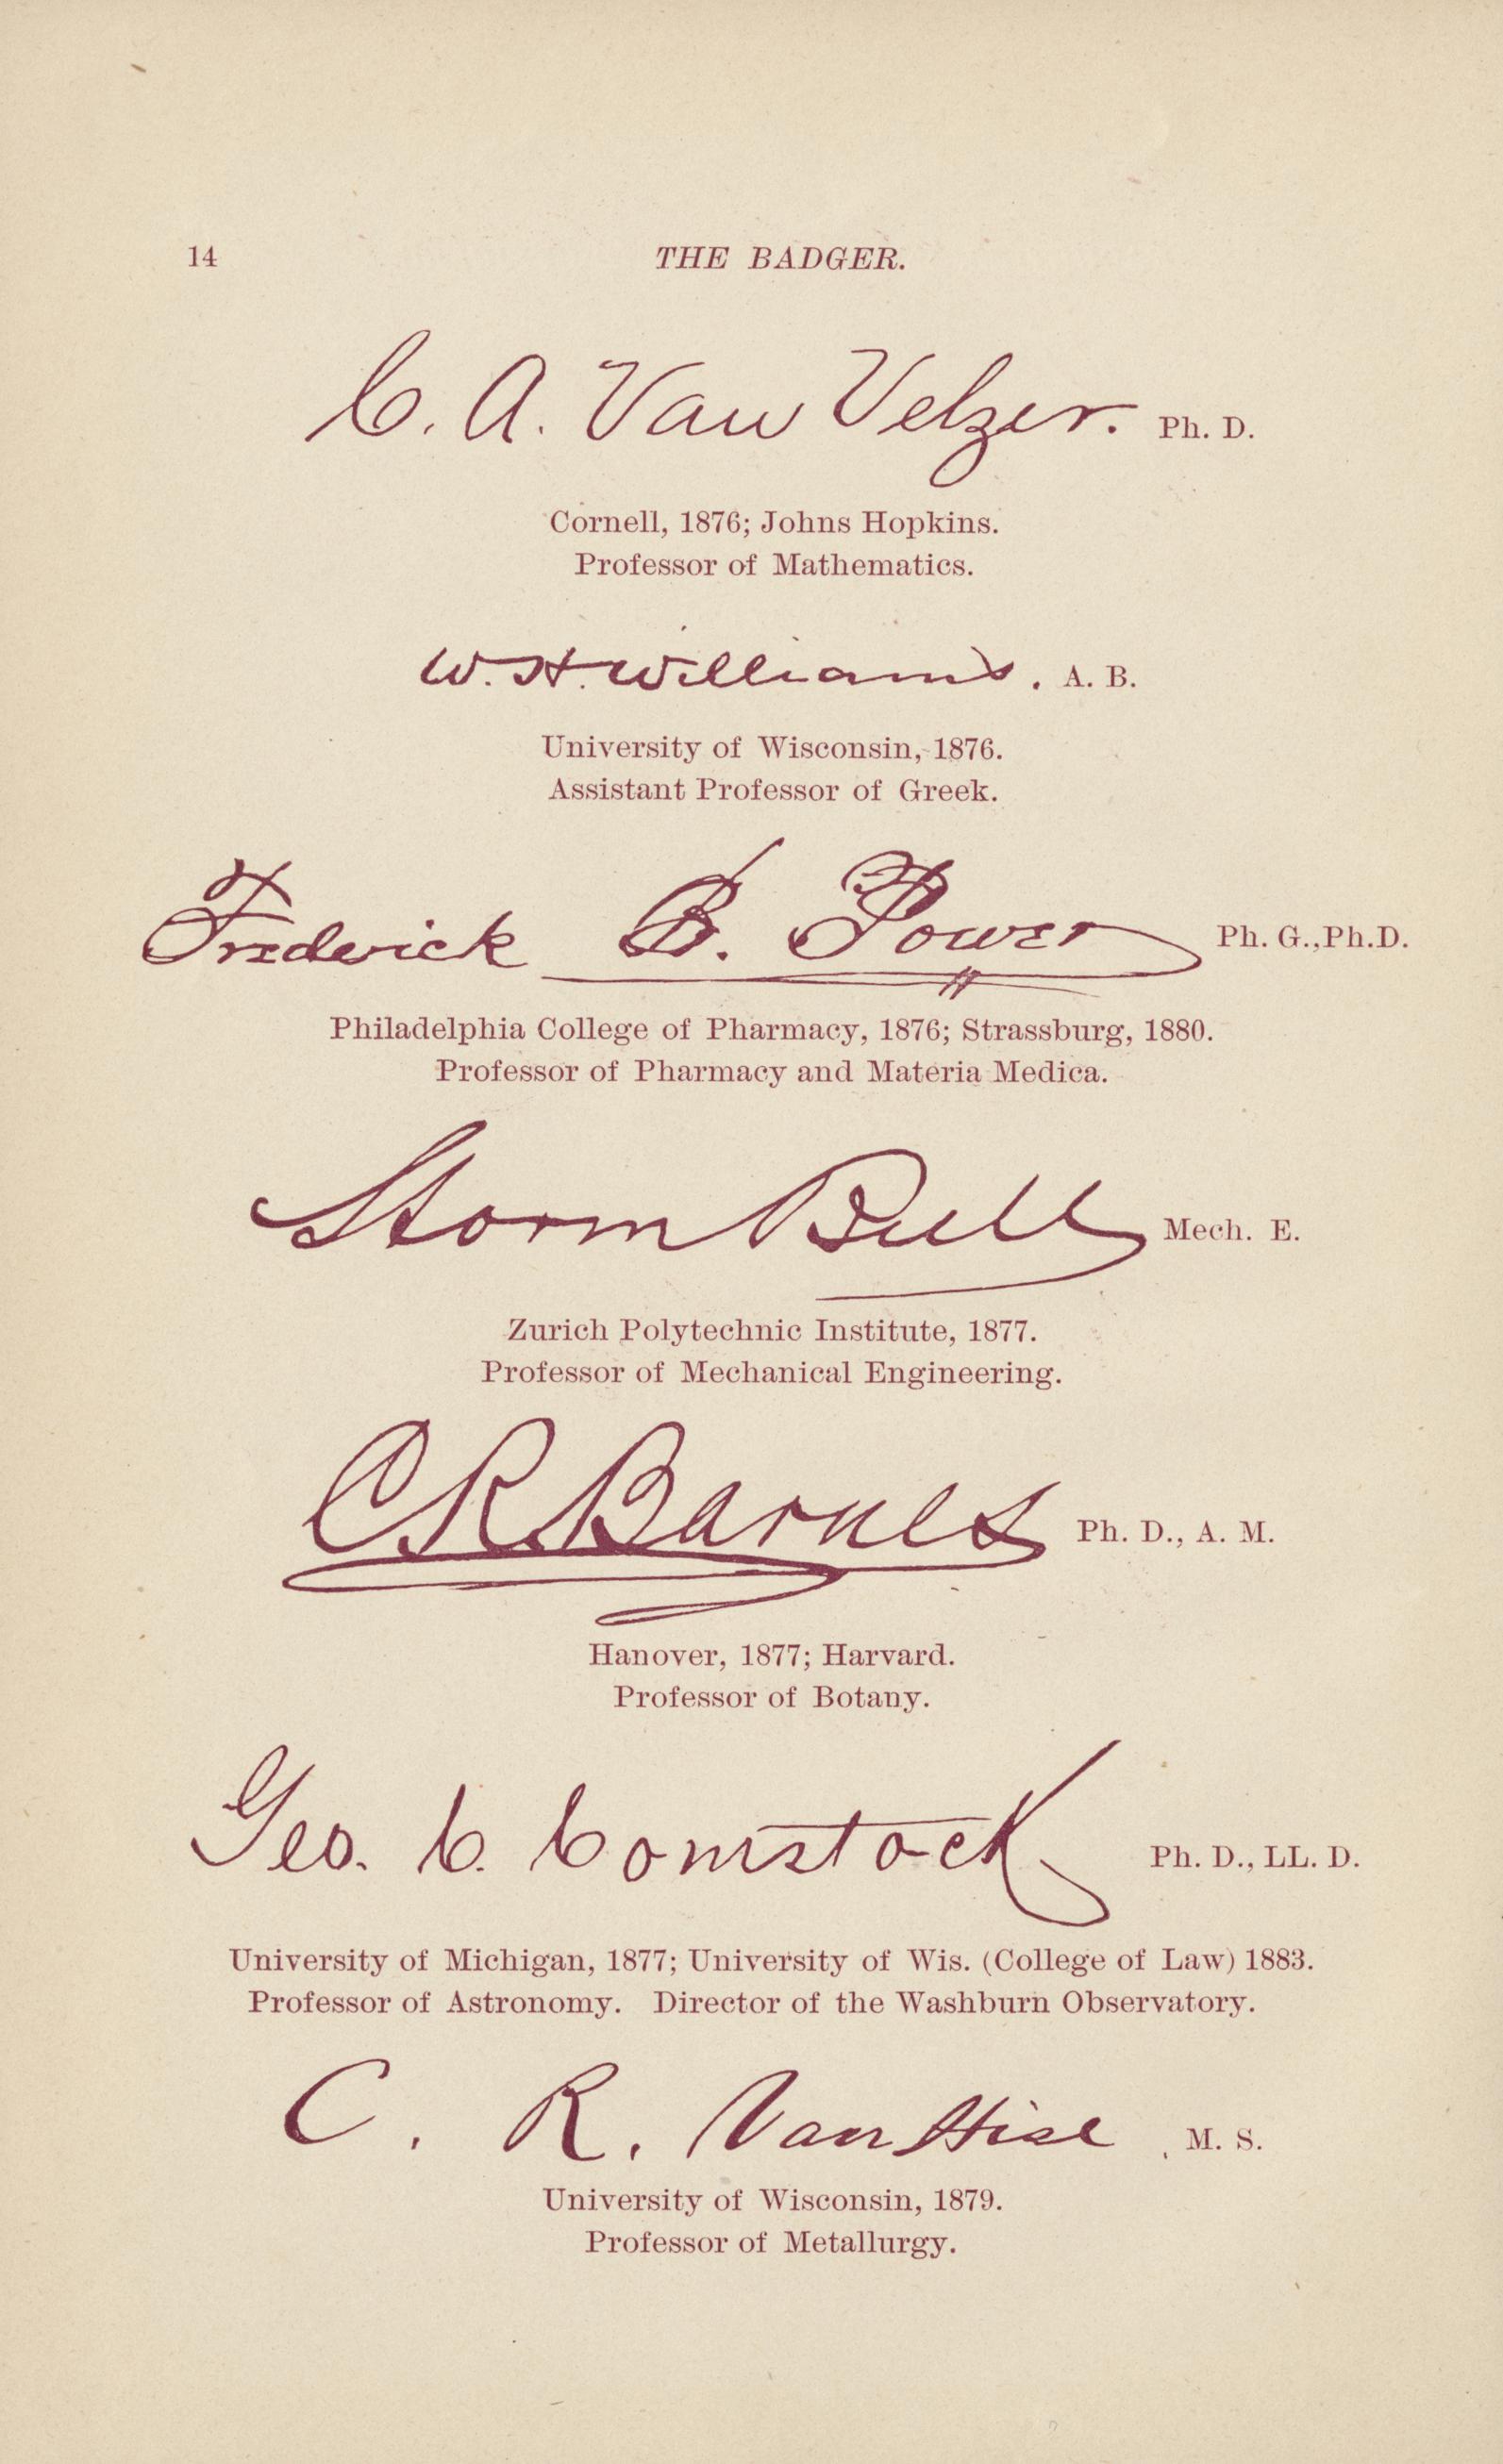 14 THE BADGER.
C. A. Van Velzer. Ph. D.
Cornell, 1876; Johns Hopkins.
Professor of Mathematics.
W. H. Williams. A. B.
University of Wisconsin, 1876.
Assistant Professor of Greek.
Frederick B. Power Ph. G., Ph.D.
Philadelphia College of Pharmacy, 1876; Strassburg, 1880.
Professor of Pharmacy and Materia Medica.
Storm Bull Mech. E.
Zurich Polytechnic Institute, 1877.
Professor of Mechanical Engineering.
C R Barnes Ph. D., A. M.
Hanover, 1877; Harvard.
Professor of Botany.
Geo. C. Comstock Ph. D., LL. D.
University of Michigan, 1877; University of Wis. (College of Law) 1883.
Professor of Astronomy. Director of the Washburn Observatory.
C. R. Van Hise, M. S.
University of Wisconsin, 1879.
Professor of Metallurgy.